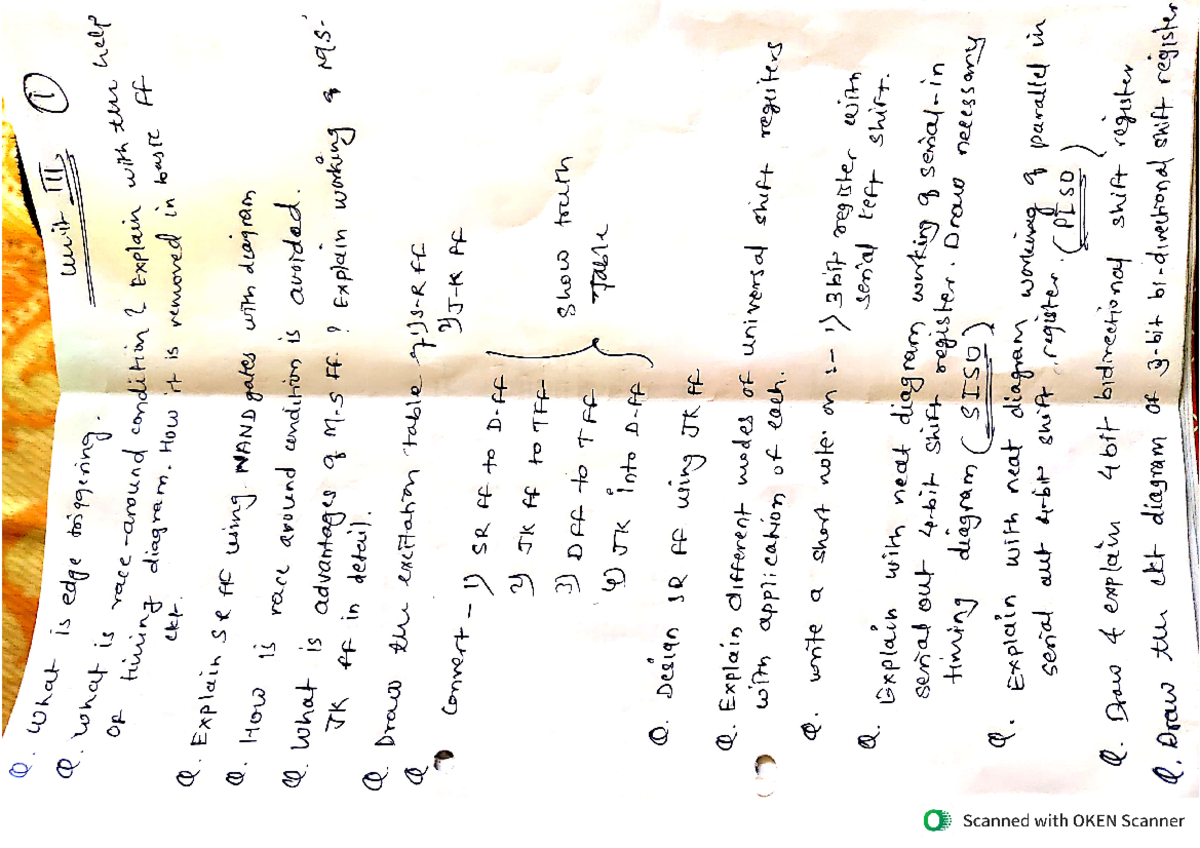 Unit - III
1
Q. What is edge triggering.
Q. What is race-around condition? Explain with the help
of timing diagram. How it is removed in basic ff
ckt.
Q. Explain SR ff using NAND gates with diagram
Q. How is race around condition is avoided.
Q. What is advantages of M-S ff. ? Explain working of MS-
JK ff in detail.
Q. Draw the excitation table of 1) S-R ff
2) J-K ff
Q Convert - 1) SR ff to D-ff
2) JK ff to Tff
3) Dff to Tff
4) JK into D-ff
Show truth
Table
Q. Design SR ff using JK ff
Q. Explain different modes of universal shift registers
with application of each.
Q. write a short note on :- 1) 3 bit register with
serial left shift.
Q. Explain with neat diagram working of serial-in
serial out 4-bit shift register. Draw necessary
timing diagram (SISO)
Q. Explain with neat diagram working of parallel in
serial out 4-bit shift register. (PISO)
Q. Draw & explain 4 bit bidirectional shift register
Q. Draw the ckt diagram of 3-bit bi-directional shift register
Scanned with OKEN Scanner